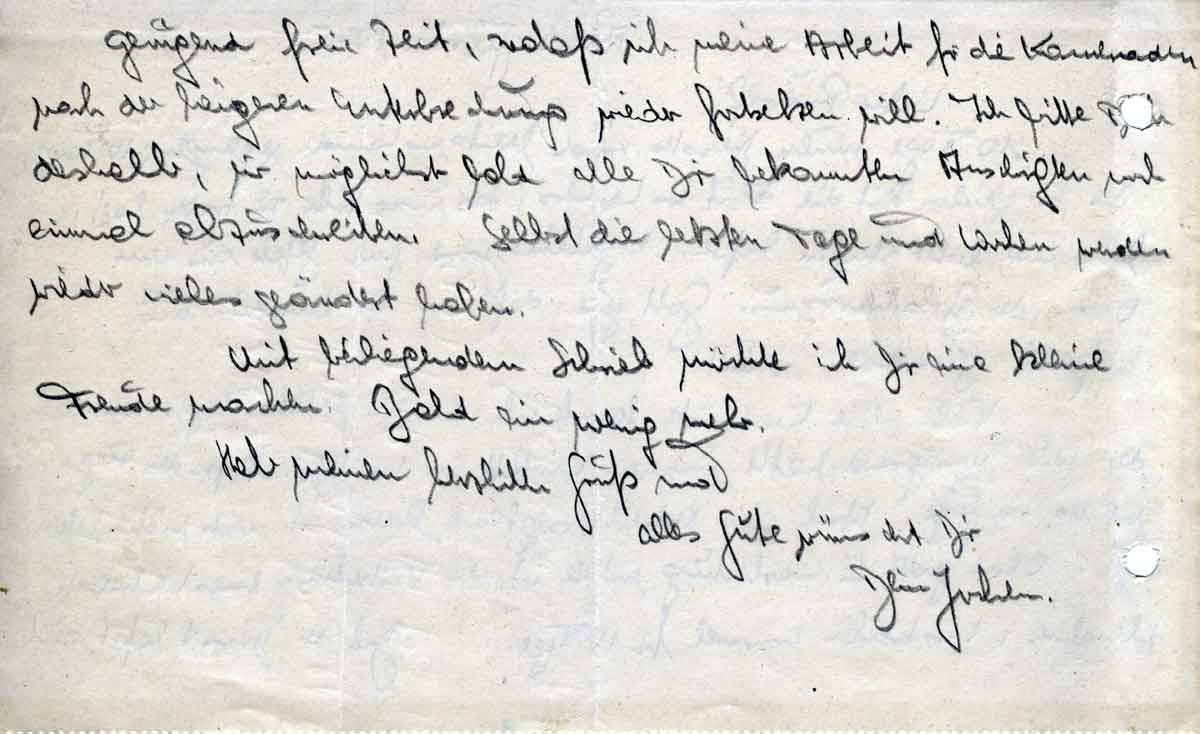 genügend freie Zeit, sodaß ich meine Arbeit für die Kameraden
nach der längeren Unterbrechung wieder fortsetzen will. Ich bitte Dich
deshalb, mir möglichst bald alle Dir bekannten Anschriften noch
einmal abzuschreiben. Selbst die letzten Tage und Wochen werden
wieder vieles geändert haben.
Mit beiliegendem Schrieb möchte ich Dir eine kleine
Freude machen. Bald ein wenig mehr.
Hab meinen herzlichen Gruß und
alles Gute wünscht Dir
Dein Jochen.